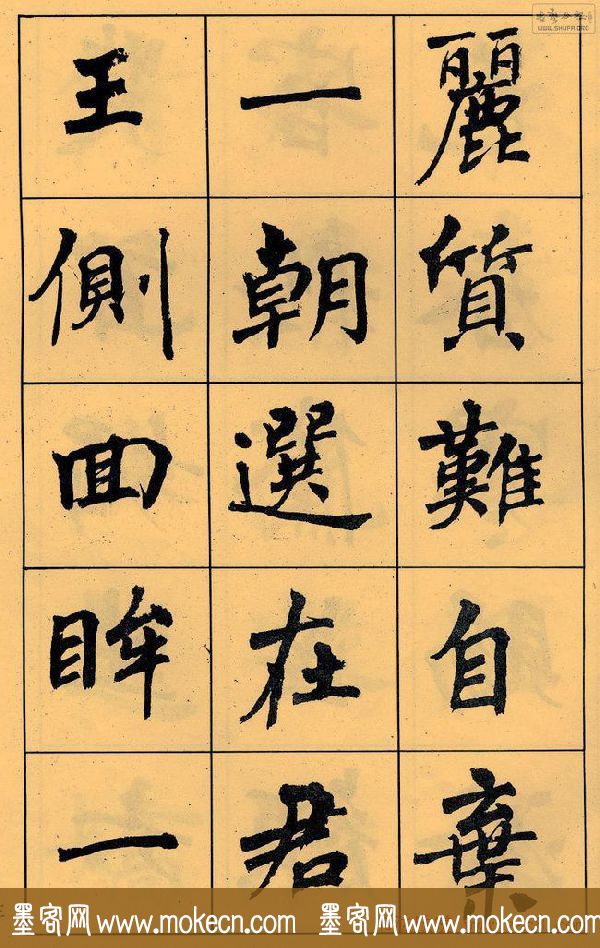 麗質難自棄
一朝選在君
王側回眸一
墨客网 www.mokecn.com 墨客网 www.mokecn.com
WWW.SHUFA.ORG